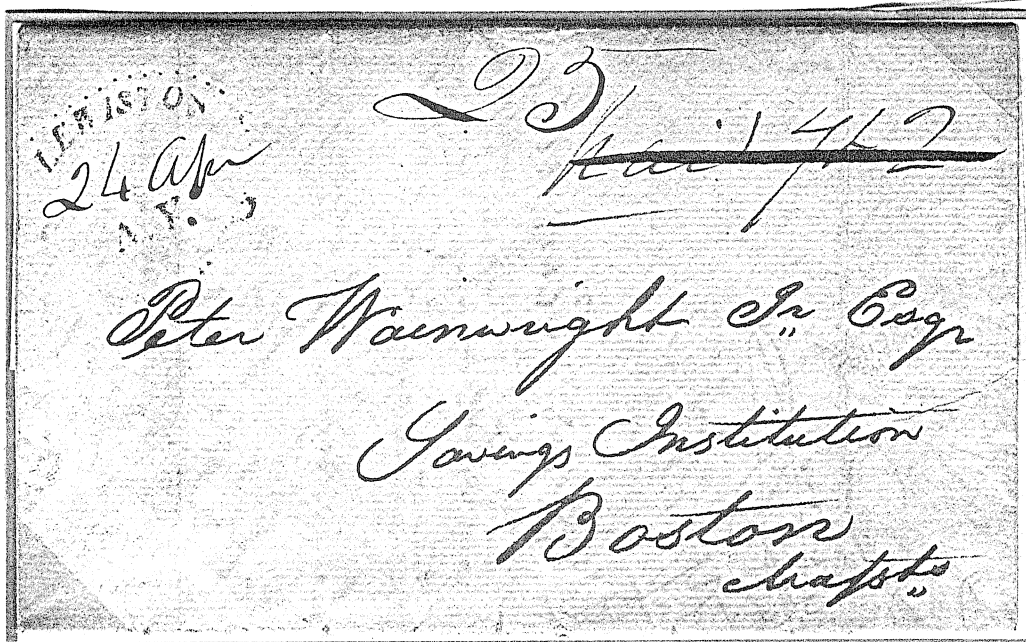 LEWISTON
24 Apr
N.Y.
25
Paid 4½
Peter Wainwright Jr Esqr
Savings Institution
Boston
Massts